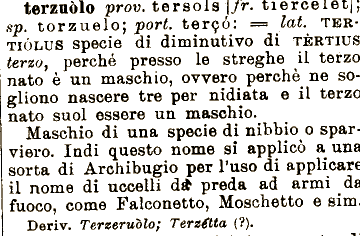 terzuòlo prov. tersols [fr. tiercelet];
sp. torzuelo; port. terçó: = lat. TER-
TIÒLUS specie di diminutivo di TÈRTIUS
terzo, perché presso le streghe il terzo
nato è un maschio, ovvero perchè ne so-
gliono nascere tre per nidiata e il terzo
nato suol essere un maschio.
Maschio di una specie di nibbio o spar-
viero. Indi questo nome si applicò a una
sorta di Archibugio per l'uso di applicare
il nome di uccelli da preda ad armi da
fuoco, come Falconetto, Moschetto e sim.
Deriv. Terzeruòlo; Terzétta (?).